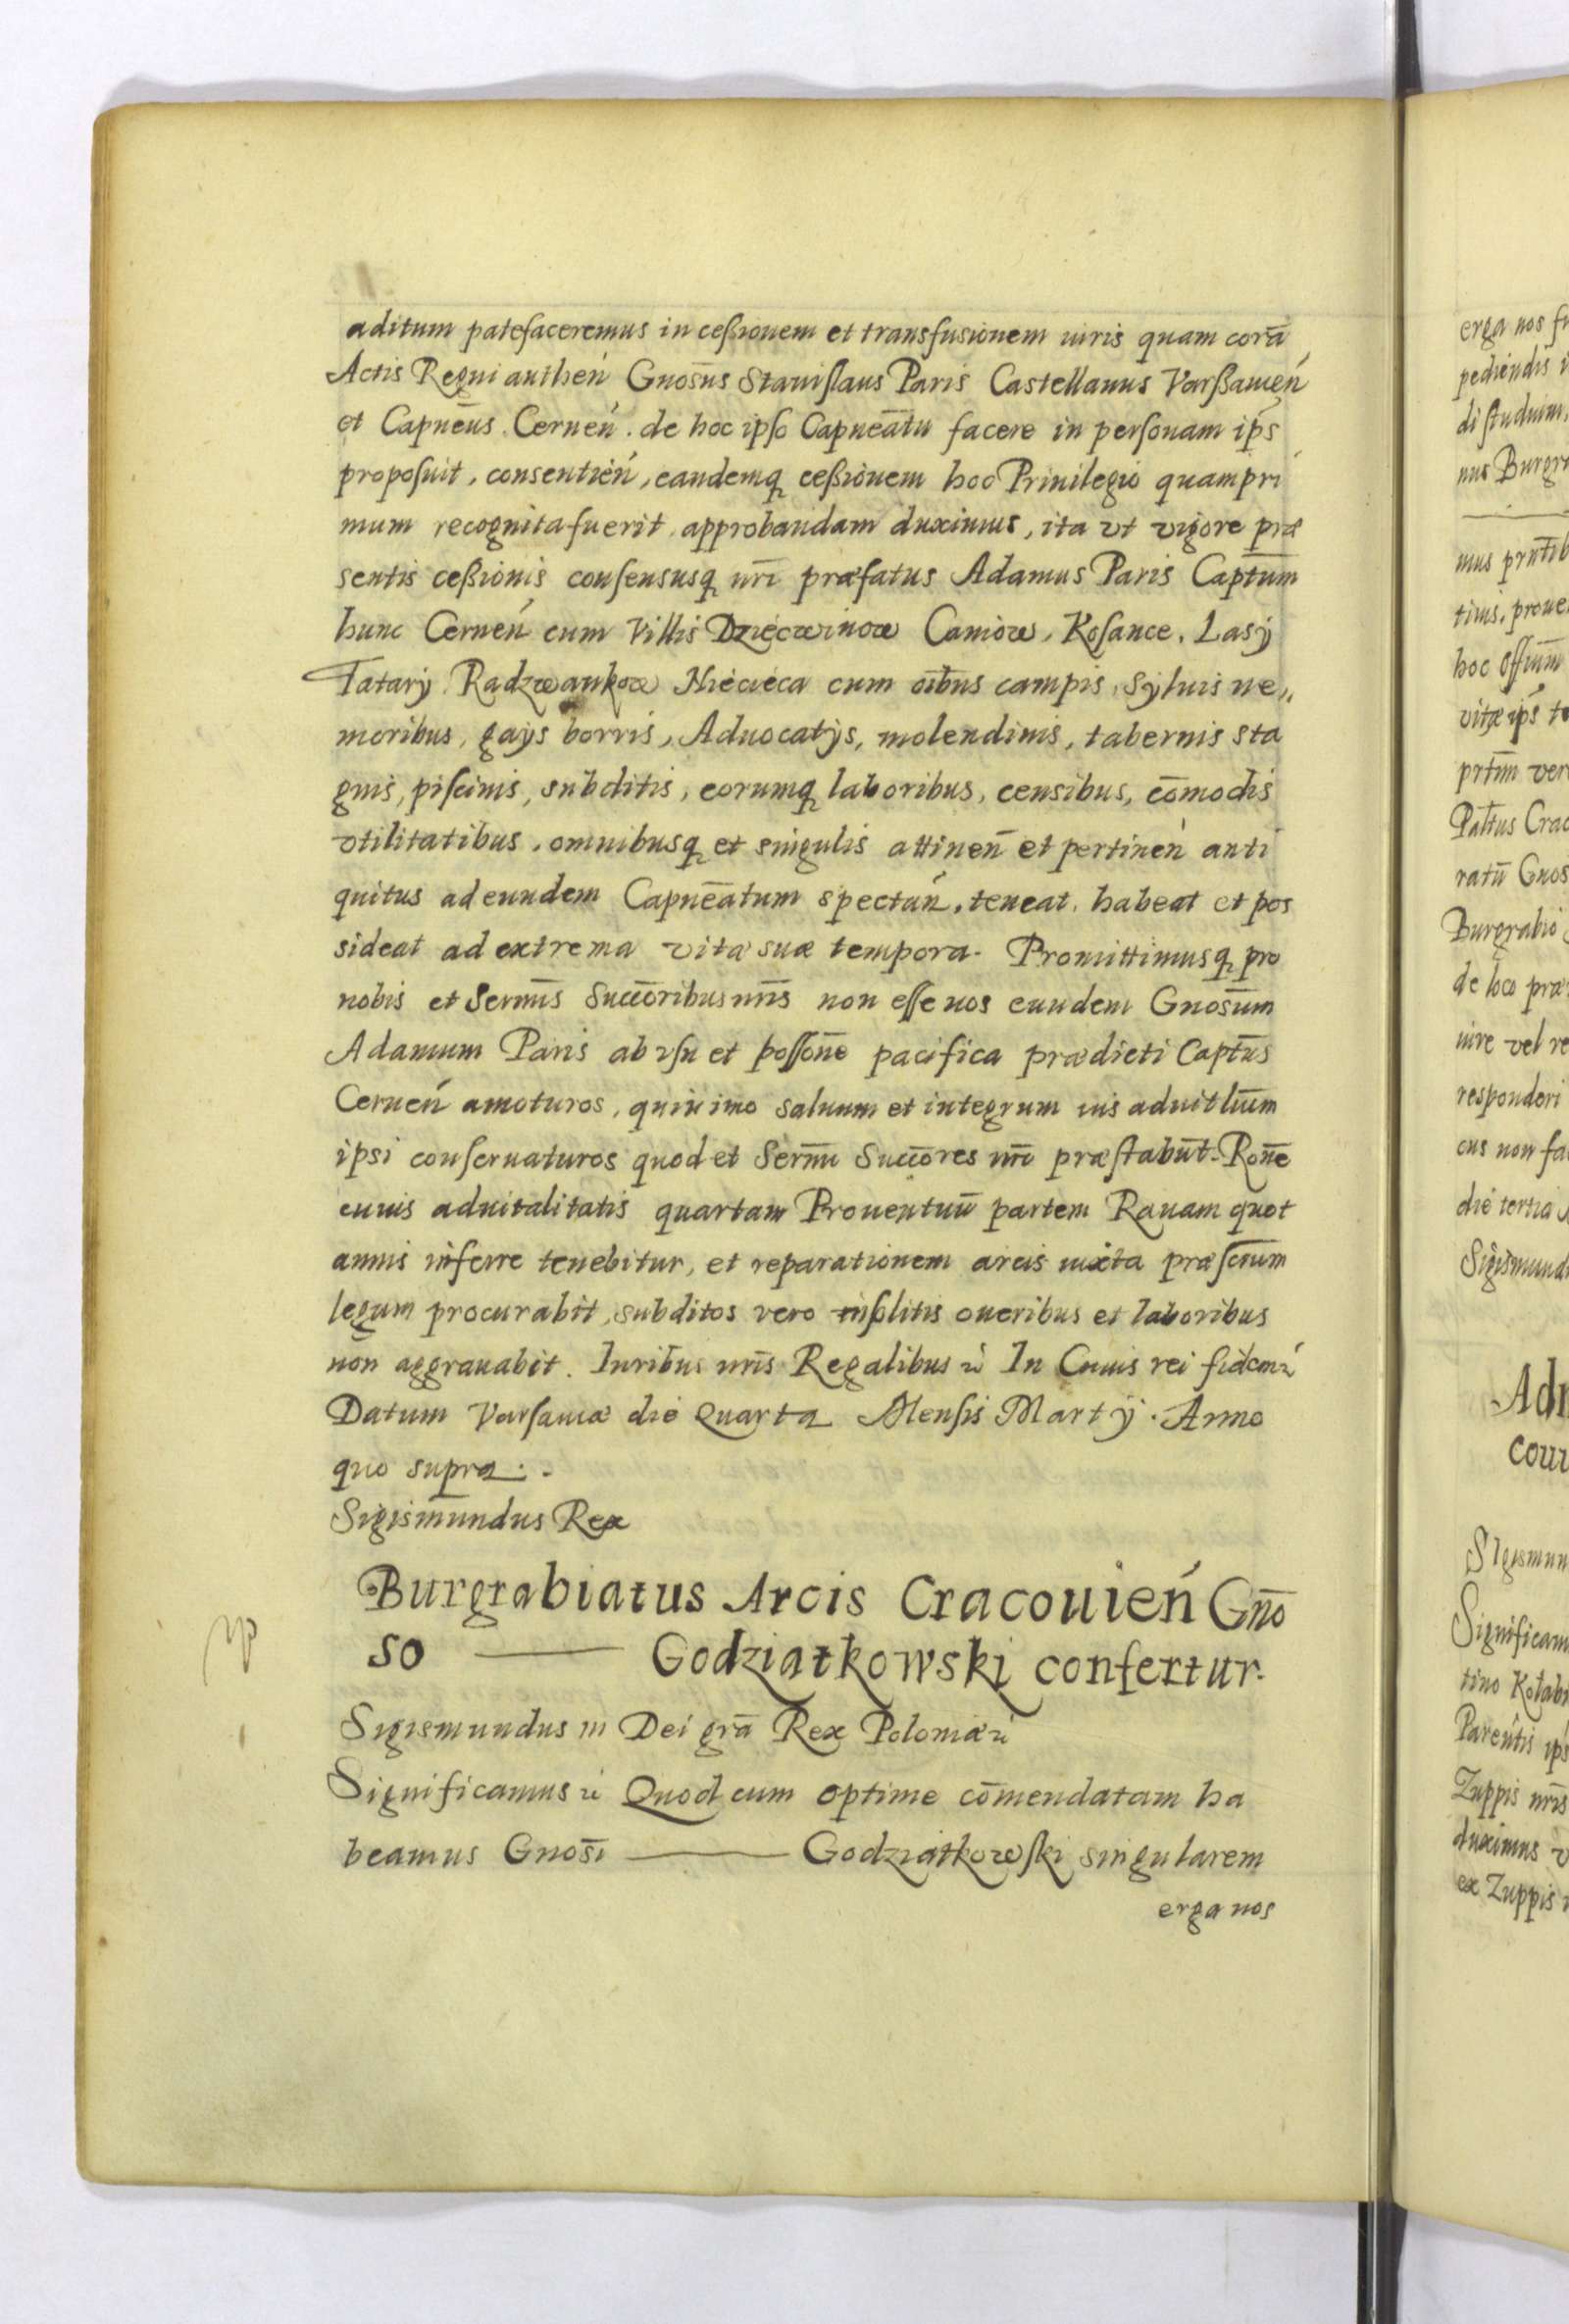 aditum patefaceremus in cessionem et transfusionem iuris quam corā
Actis Regni authen̄ Gnosn̄s Stanislaus Paris Castellanus Varssauień
et Capnēus Cerneń. de hoc ipso Capneātu facere in personam ips̄
proposuit, consentień, eandemq̨ cessionem hoc Priuilegio quampri
mum recognita fuerit approbandam duximus, ita vt vigore præ
sentis cessionis consensusq̨ nr̄i præfatus Adamus Paris Captūm
hunc Cerneń cum Villis Dziecwinow Caniow, Kosance, Lasy
Tatary Radzwankow Niecieca cum oībus campis, syluis ne,,
moribus, gays borris, Aduocatÿs, molendinis, tabernis sta
gnis, piscinis, subditis, eorumq̨ laboribus, censibus, cōmodis
vtilitatibus, omnibusq̨ et singulis attinen̄ et pertineń anti
quitus ad eundem Capneātum spectań, teneat, habeat et pos
sideat ad extrema vitæ suæ tempora. Promittimusq̨ pro
nobis et Sermīs Succōribus nr̄is non esse nos eundem Gnosūm
Adamum Paris ab vsu et possōne pacifica prædicti Captūs
Cerneń amoturos, quinimo saluum et integrum ius aduitlīum
ipsi conseruaturos quod et Serm̄i Succōres nr̄i præstabūt. Ronē
cuius aduitalitatis quartam Prouentuū partem Rauam quot
annis inferre tenebitur, et reparationem arcis iuxta præscrīum
legum procurabit, subditos vero insolitis oneribus et laboribus
non aggrauabit. Iuribus nr̄is Regalibus ꝛć In Cuius rei fidem ꝛć
Datum Varsauiæ die Quarta Mensis Martÿ. Anno
quo supra..
Sigismundus Rex
Burgrabiatus Arcis Cracouień Gno̅
so —— Godziatkowski confertur.
Sigismundus III Dei grā Rex Poloniæ ꝛć
Significamus ꝛć Quod cum optime cōmendatam ha
beamus Gnosī —— Godziatkowski singularem
erga nos
erga nos
pediendis
di studium,
nus
mus
hoc
vitæ ips̄
Burgrabio
de loco præ
iure vel re
responderi
cus non fa
die tertia
Sigismund
Adm
Sigismun
Significam
Parentis ips̄
Zuppis nr̄is
duximus
ex Zuppis